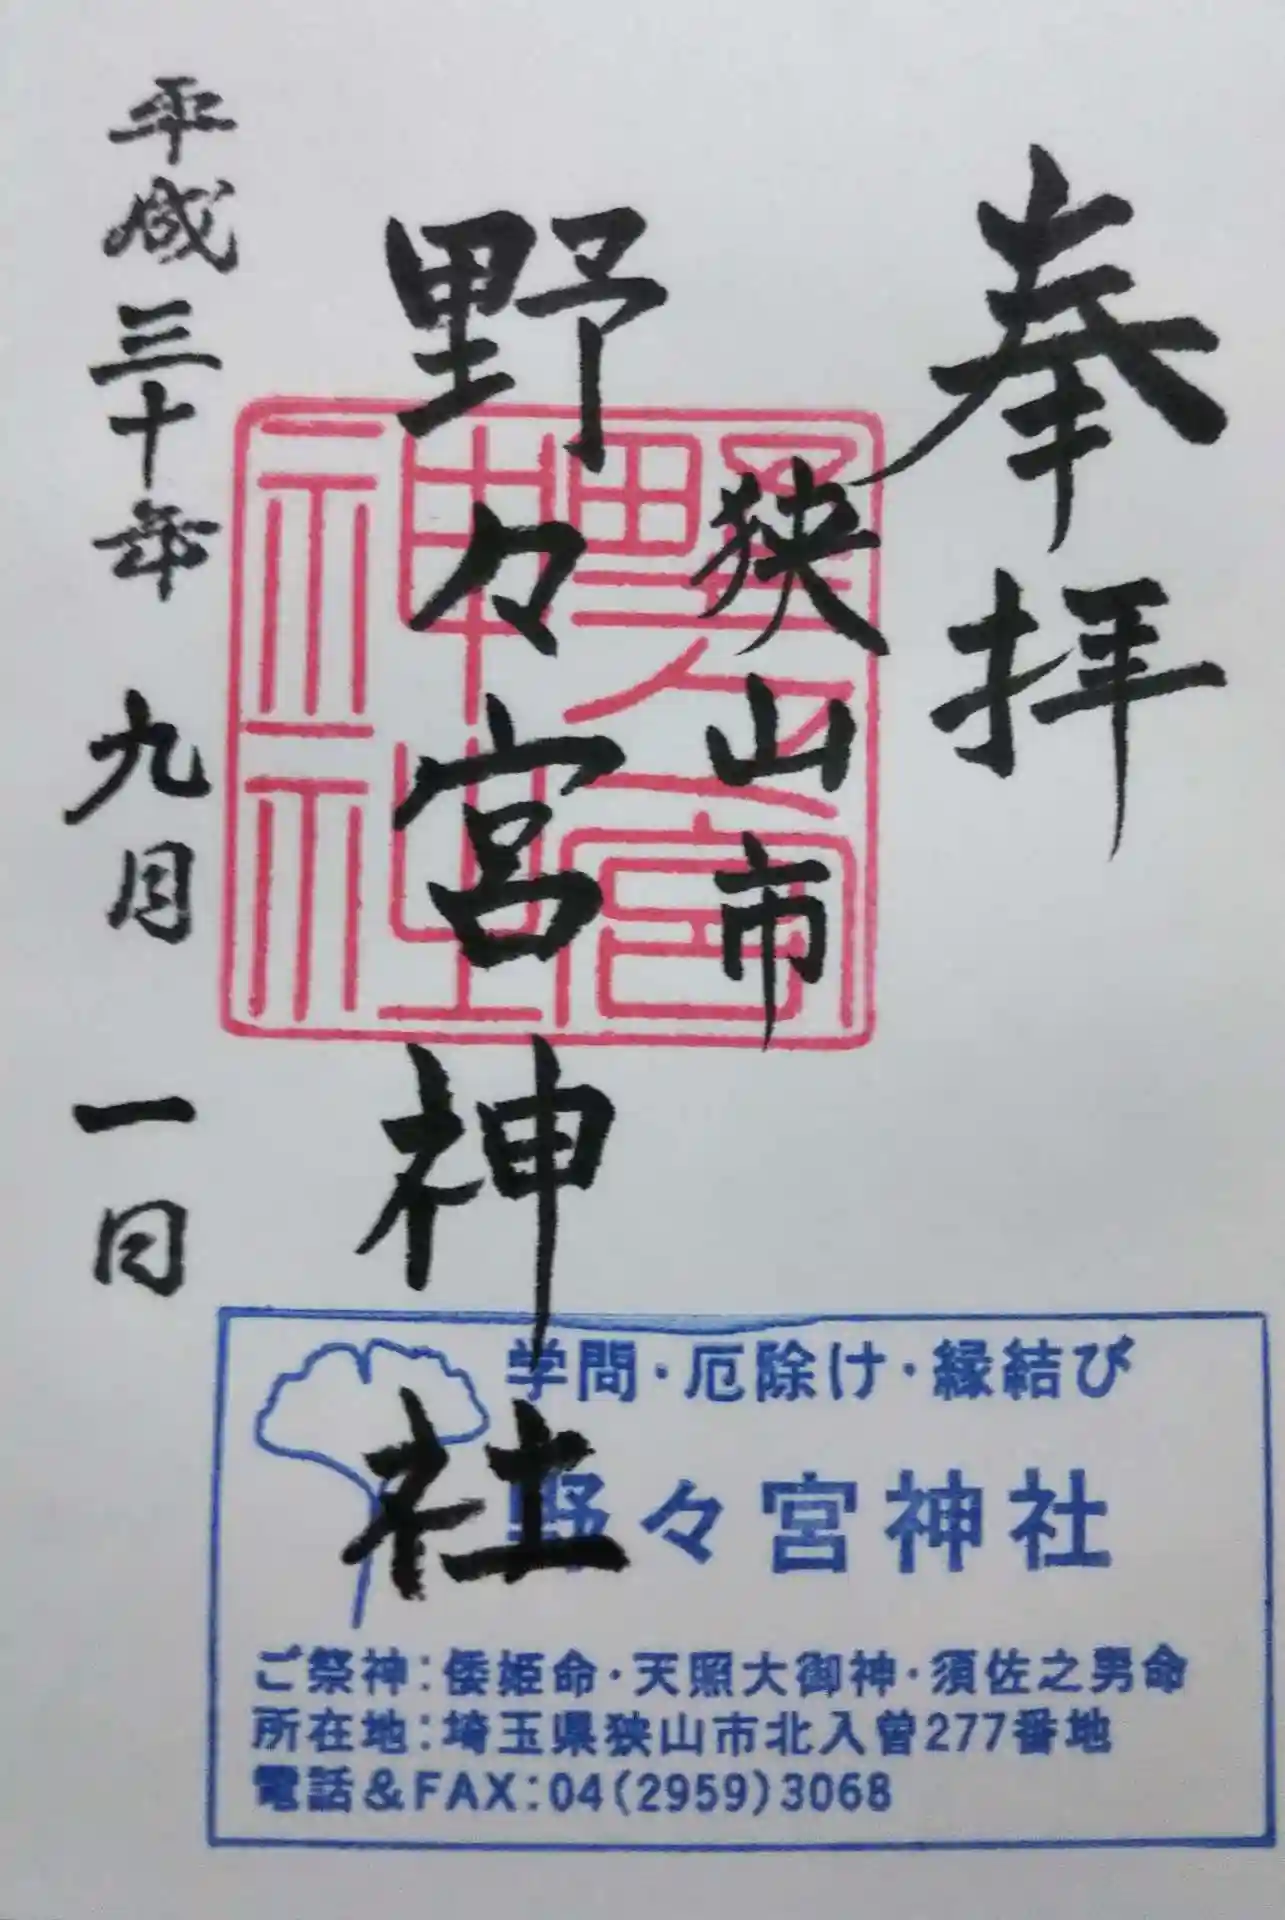 奉拝
狭山市
野々宮神社
平成三十年 九月 一日
野々宮
神社
学問・厄除け・縁結び
野々宮神社
ご祭神：倭姫命・天照大御神・須佐之男命
所在地：埼玉県狭山市北入曽277番地
電話＆FAX：04(2959)3068